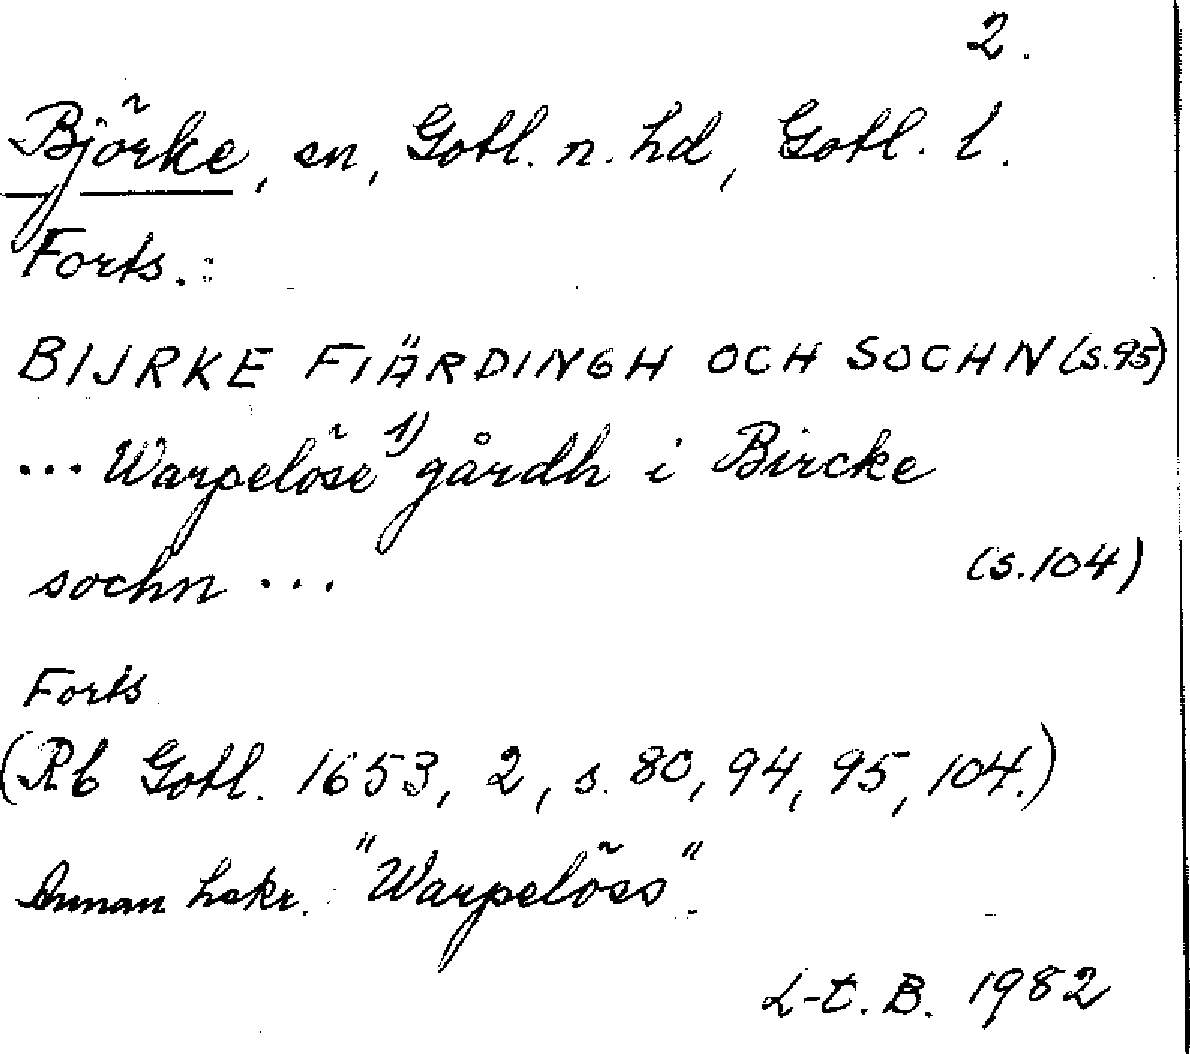 2.
Björke, sn, Gotl. n. hd, Gotl. l.
Forts.:
BIJRKE FIÄRDINGH OCH SOCHN (s. 95)
... Warpelöse 1) gårdh i Bircke
sochn ... (s. 104)
Forts
(Rb Gotl. 1653, 2, s. 80, 94, 95, 104.)
Annan hskr. "Warpelöss".
L-t. B. 1982